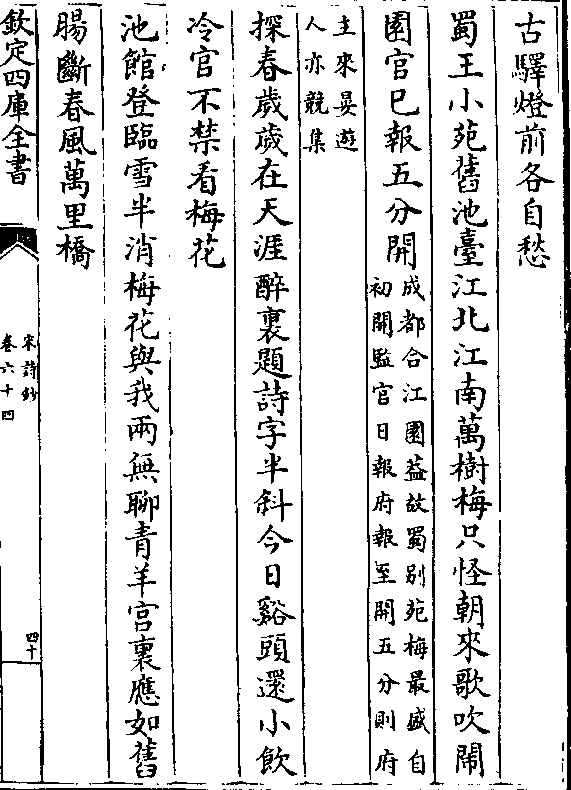 古驛燈前各自愁
蜀王小苑舊池臺江北江南萬樹梅只怪朝來歌吹鬧
園官已報五分開
成都合江園葢故蜀别苑梅最盛自
初開監官日報府報至開五分則府
主來晏遊
人亦競集
探春歲歲在天涯醉裏題詩字半斜今日谿頭還小飲
冷官不禁看梅花
池館登臨雪半消梅花與我兩無聊青羊宫裏應如舊
腸斷春風萬里橋
欽定四庫全書
宋詩鈔
卷六十四
四十